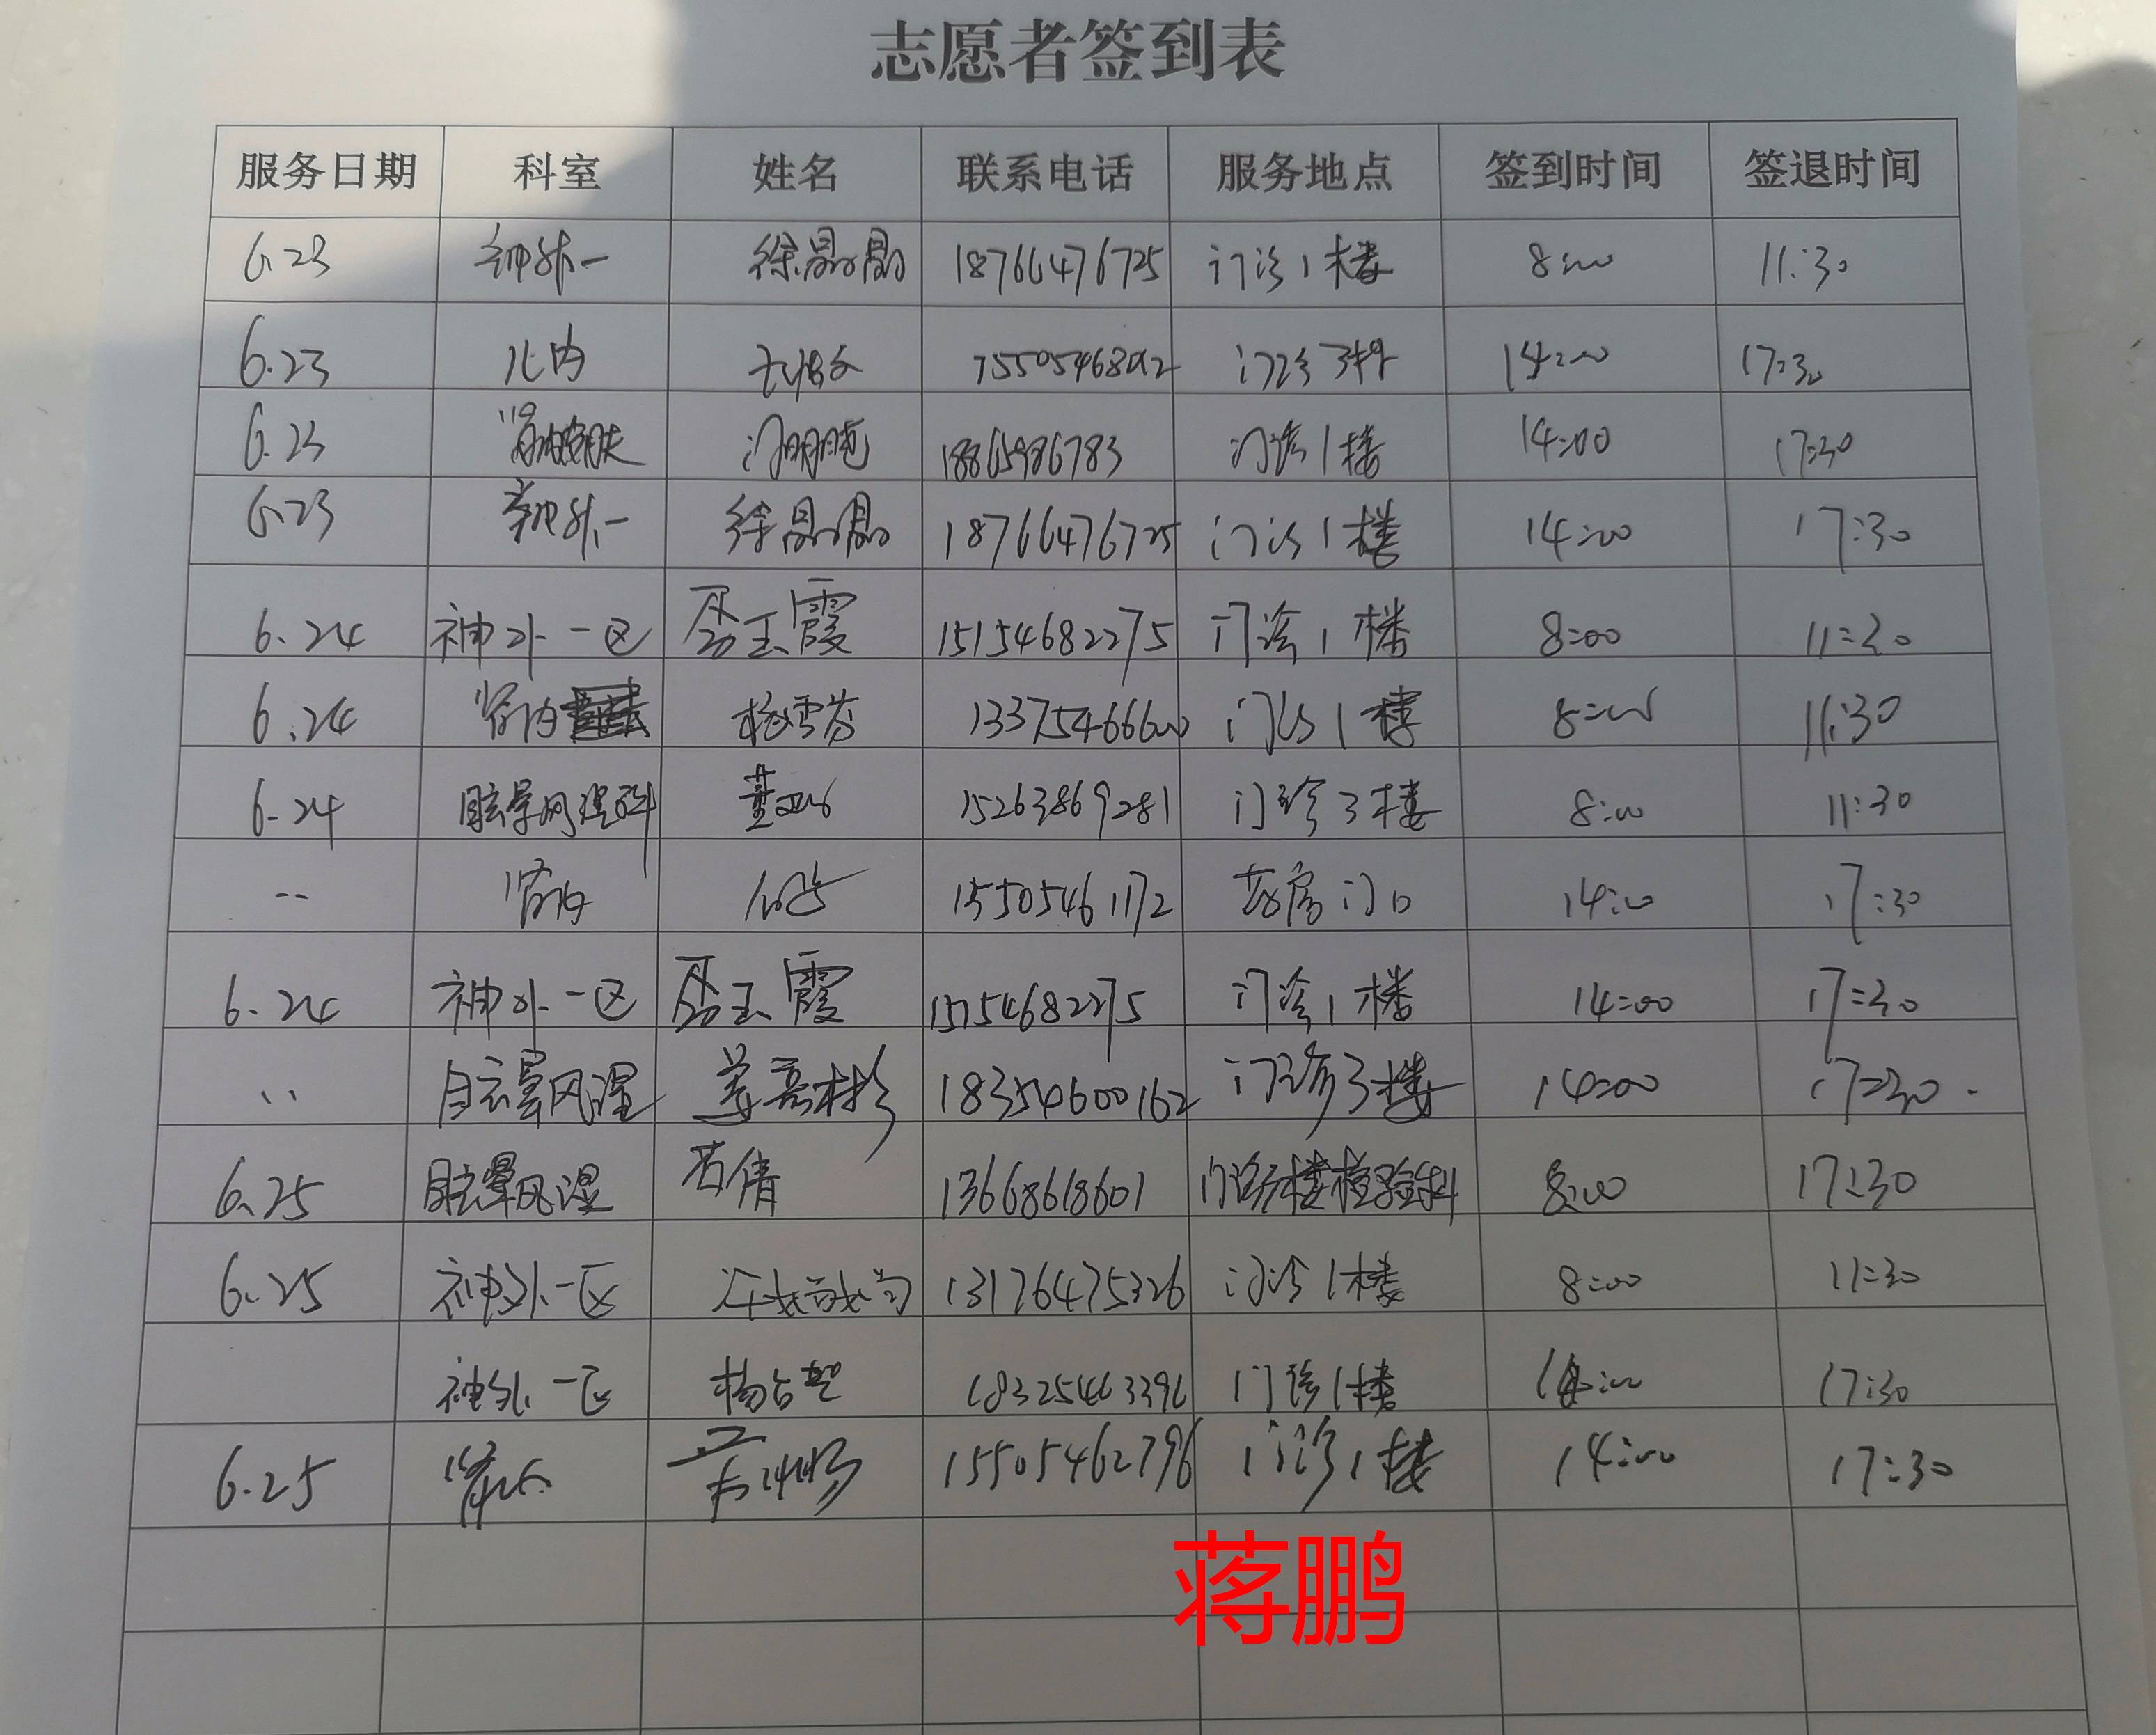 志愿者签到表
服务日期 科室 姓名 联系电话 服务地点 签到时间 签退时间
6.23 神外一 徐晶晶 18766476725 门诊1楼 8:00 11:30
6.23 儿内 门诊3楼 14:00 17:30
6.23 门诊1楼 14:00 17:30
6.23 神外一 徐晶晶 18766476725 门诊1楼 14:00 17:30
6.24 神外一区 玉霞 15154682275 门诊1楼 8:00 11:30
6.24 肾内 杨雪芬 13375466600 门诊1楼 8:00 11:30
6.24 眩晕风湿科 董 15263869281 门诊3楼 8:00 11:30
肾内 15505461172 药房门口 14:00 17:30
6.24 神外一区 玉霞 15154682275 门诊1楼 14:00 17:30
眩晕风湿 姜 18354600162 门诊3楼 14:00 17:30
6.25 眩晕风湿 苫倩 13668618601 检验科 8:00 17:30
6.25 神外一区 13176475326 门诊1楼 8:00 11:30
神外一区 杨 18325463396 门诊1楼 14:00 17:30
6.25 肾内 15505462796 门诊1楼 14:00 17:30
蒋鹏